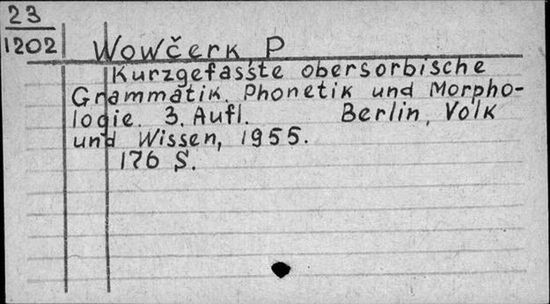 23
1202
Wowčerk P
Kurzgefasste obersorbische
Grammatik. Phonetik und Morpho-
logie. 3. Aufl. Berlin, Volk
und Wissen, 1955.
176 S.